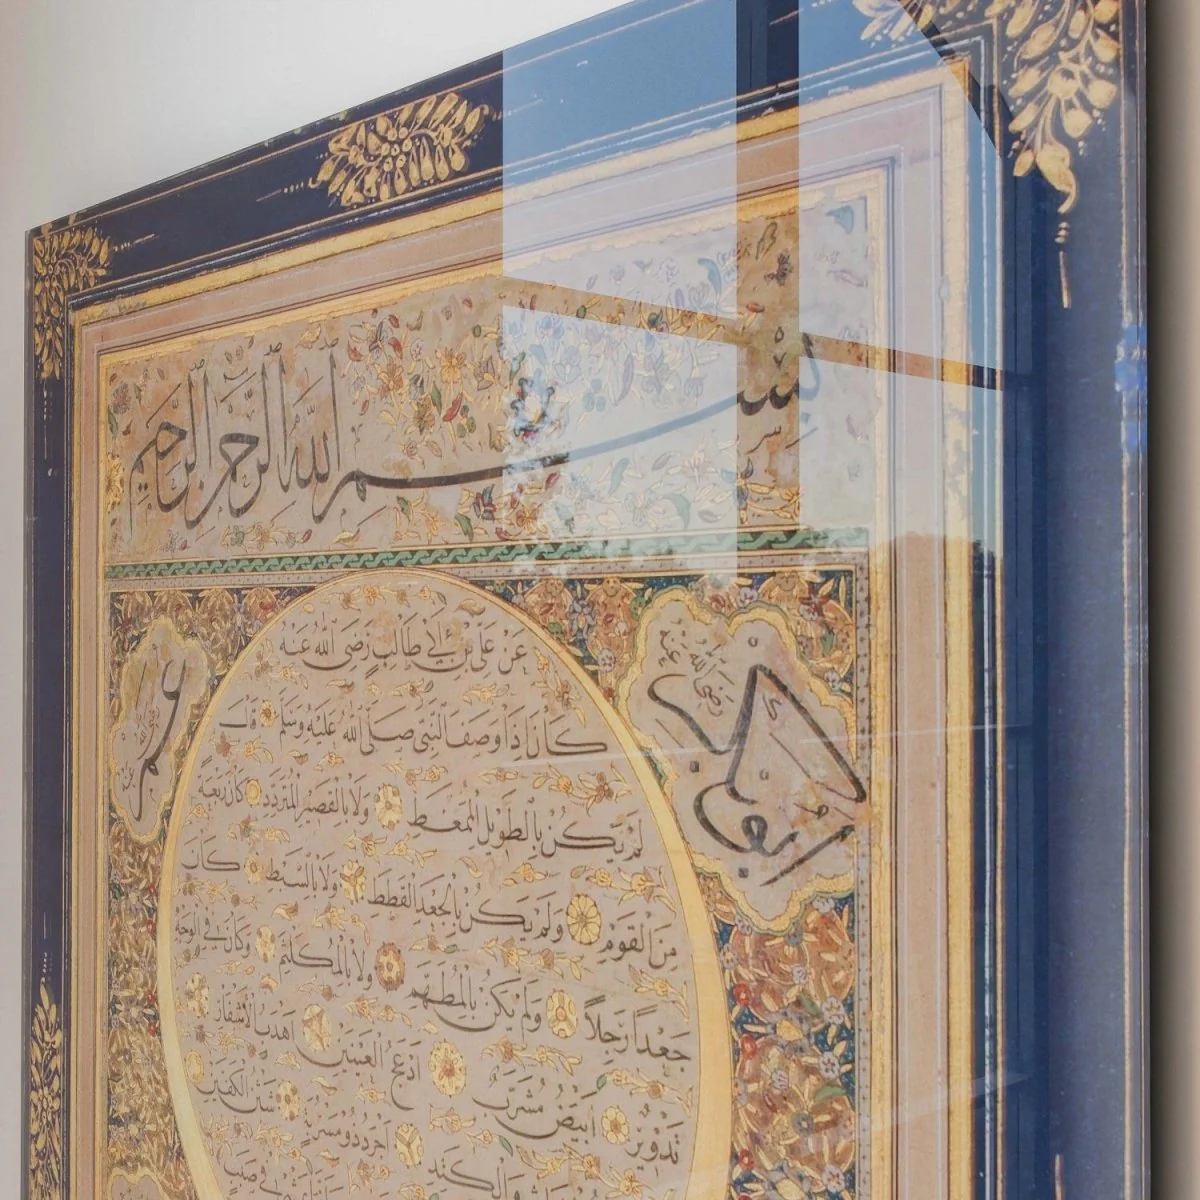 بسم الله الرحمن الرحيم
عن علي بن أبي طالب رضي الله عنه
كان إذا وصف النبي صلى الله عليه وسلم قال
لم يكن بالطويل الممغط ولا بالقصير المتردد كان ربعة
من القوم ولم يكن بالجعد القطط ولا بالسبط كان
جعدا رجلا ولم يكن بالمطهم ولا بالمكلثم وكان في الوجه
تدوير أبيض مشرب أدعج العينين أهدب الأشفار
والكتد أجرد ذو مسربة شثن الكفين
أبو بكر رضي الله عنه
عمر